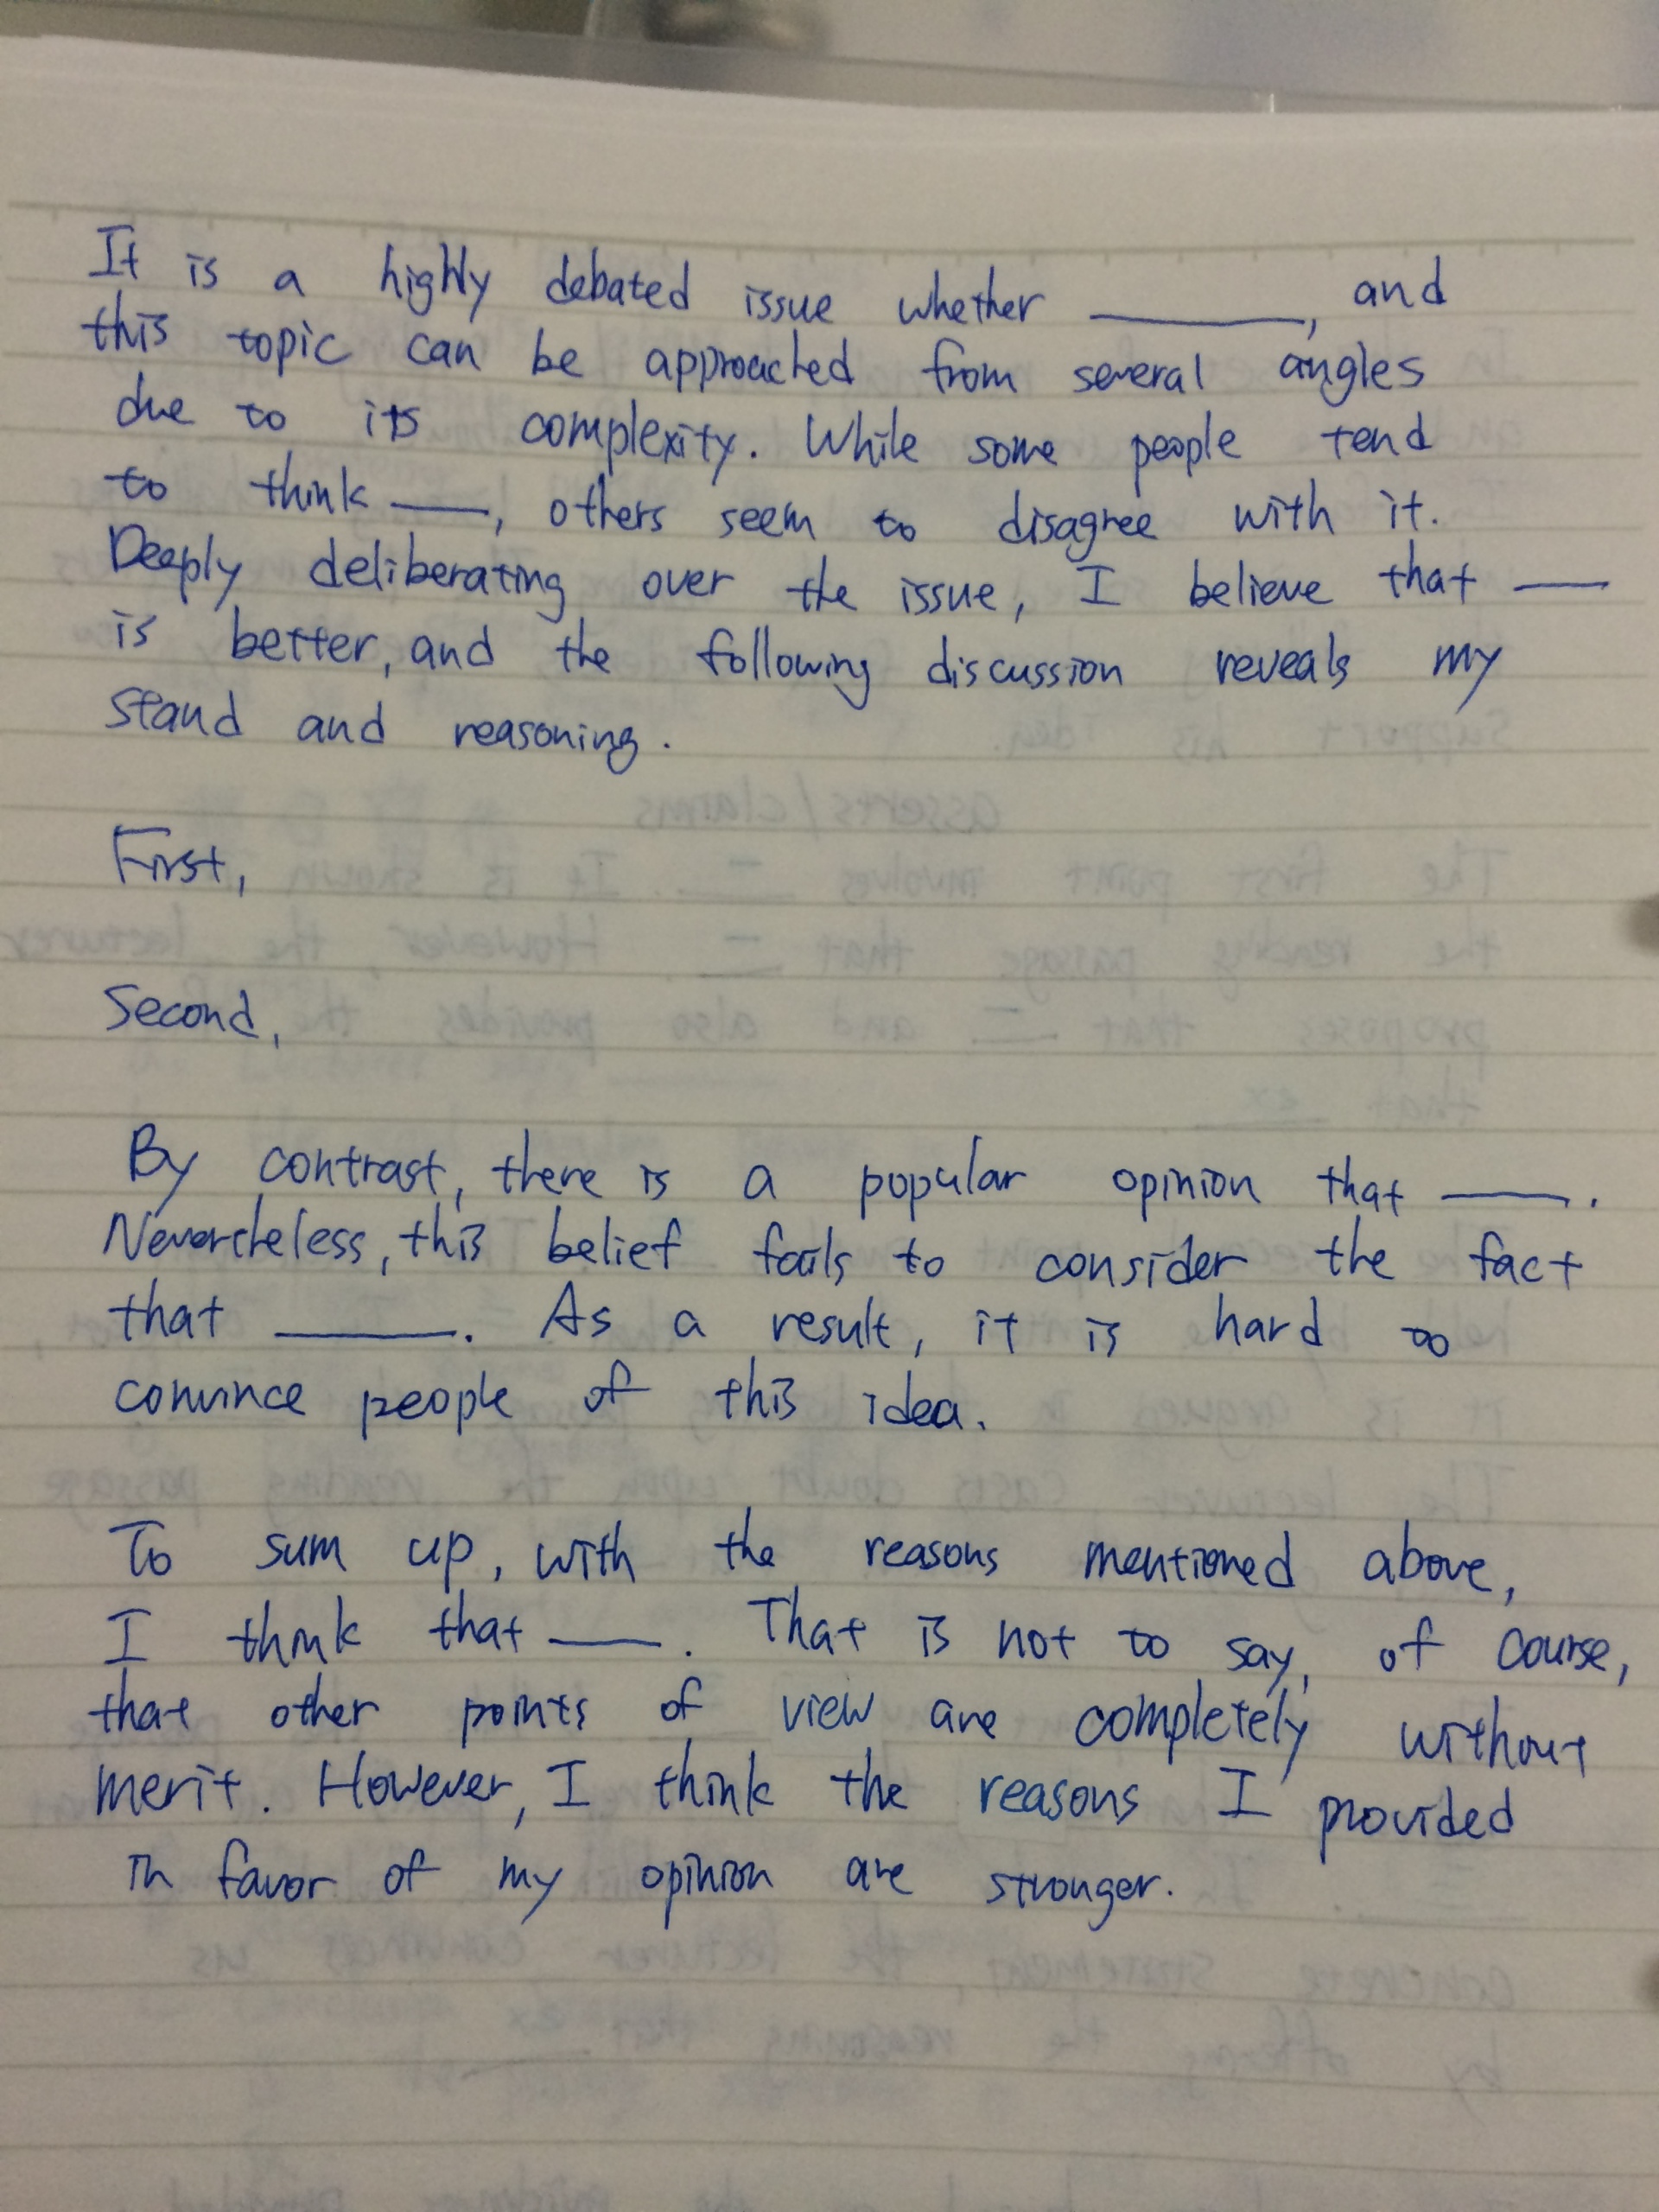 It is a highly debated issue whether ______, and
this topic can be approached from several angles
due to its complexity. While some people tend
to think ___, others seem to disagree with it.
Deeply deliberating over the issue, I believe that ___
is better, and the following discussion reveals my
stand and reasoning.
First,
Second,
By contrast, there is a popular opinion that ____.
Nevertheless, this belief fails to consider the fact
that _____. As a result, it is hard to
convince people of this idea.
To sum up, with the reasons mentioned above,
I think that ___. That is not to say, of course,
that other points of view are completely without
merit. However, I think the reasons I provided
in favor of my opinion are stronger.